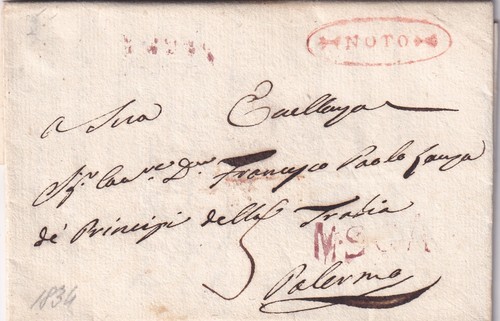 NOTO
a Sua Eccellenza
Sig.r Cav.re D.n Francesco Paolo Lanza
de' Principi della Trabia
5
Palermo
1834